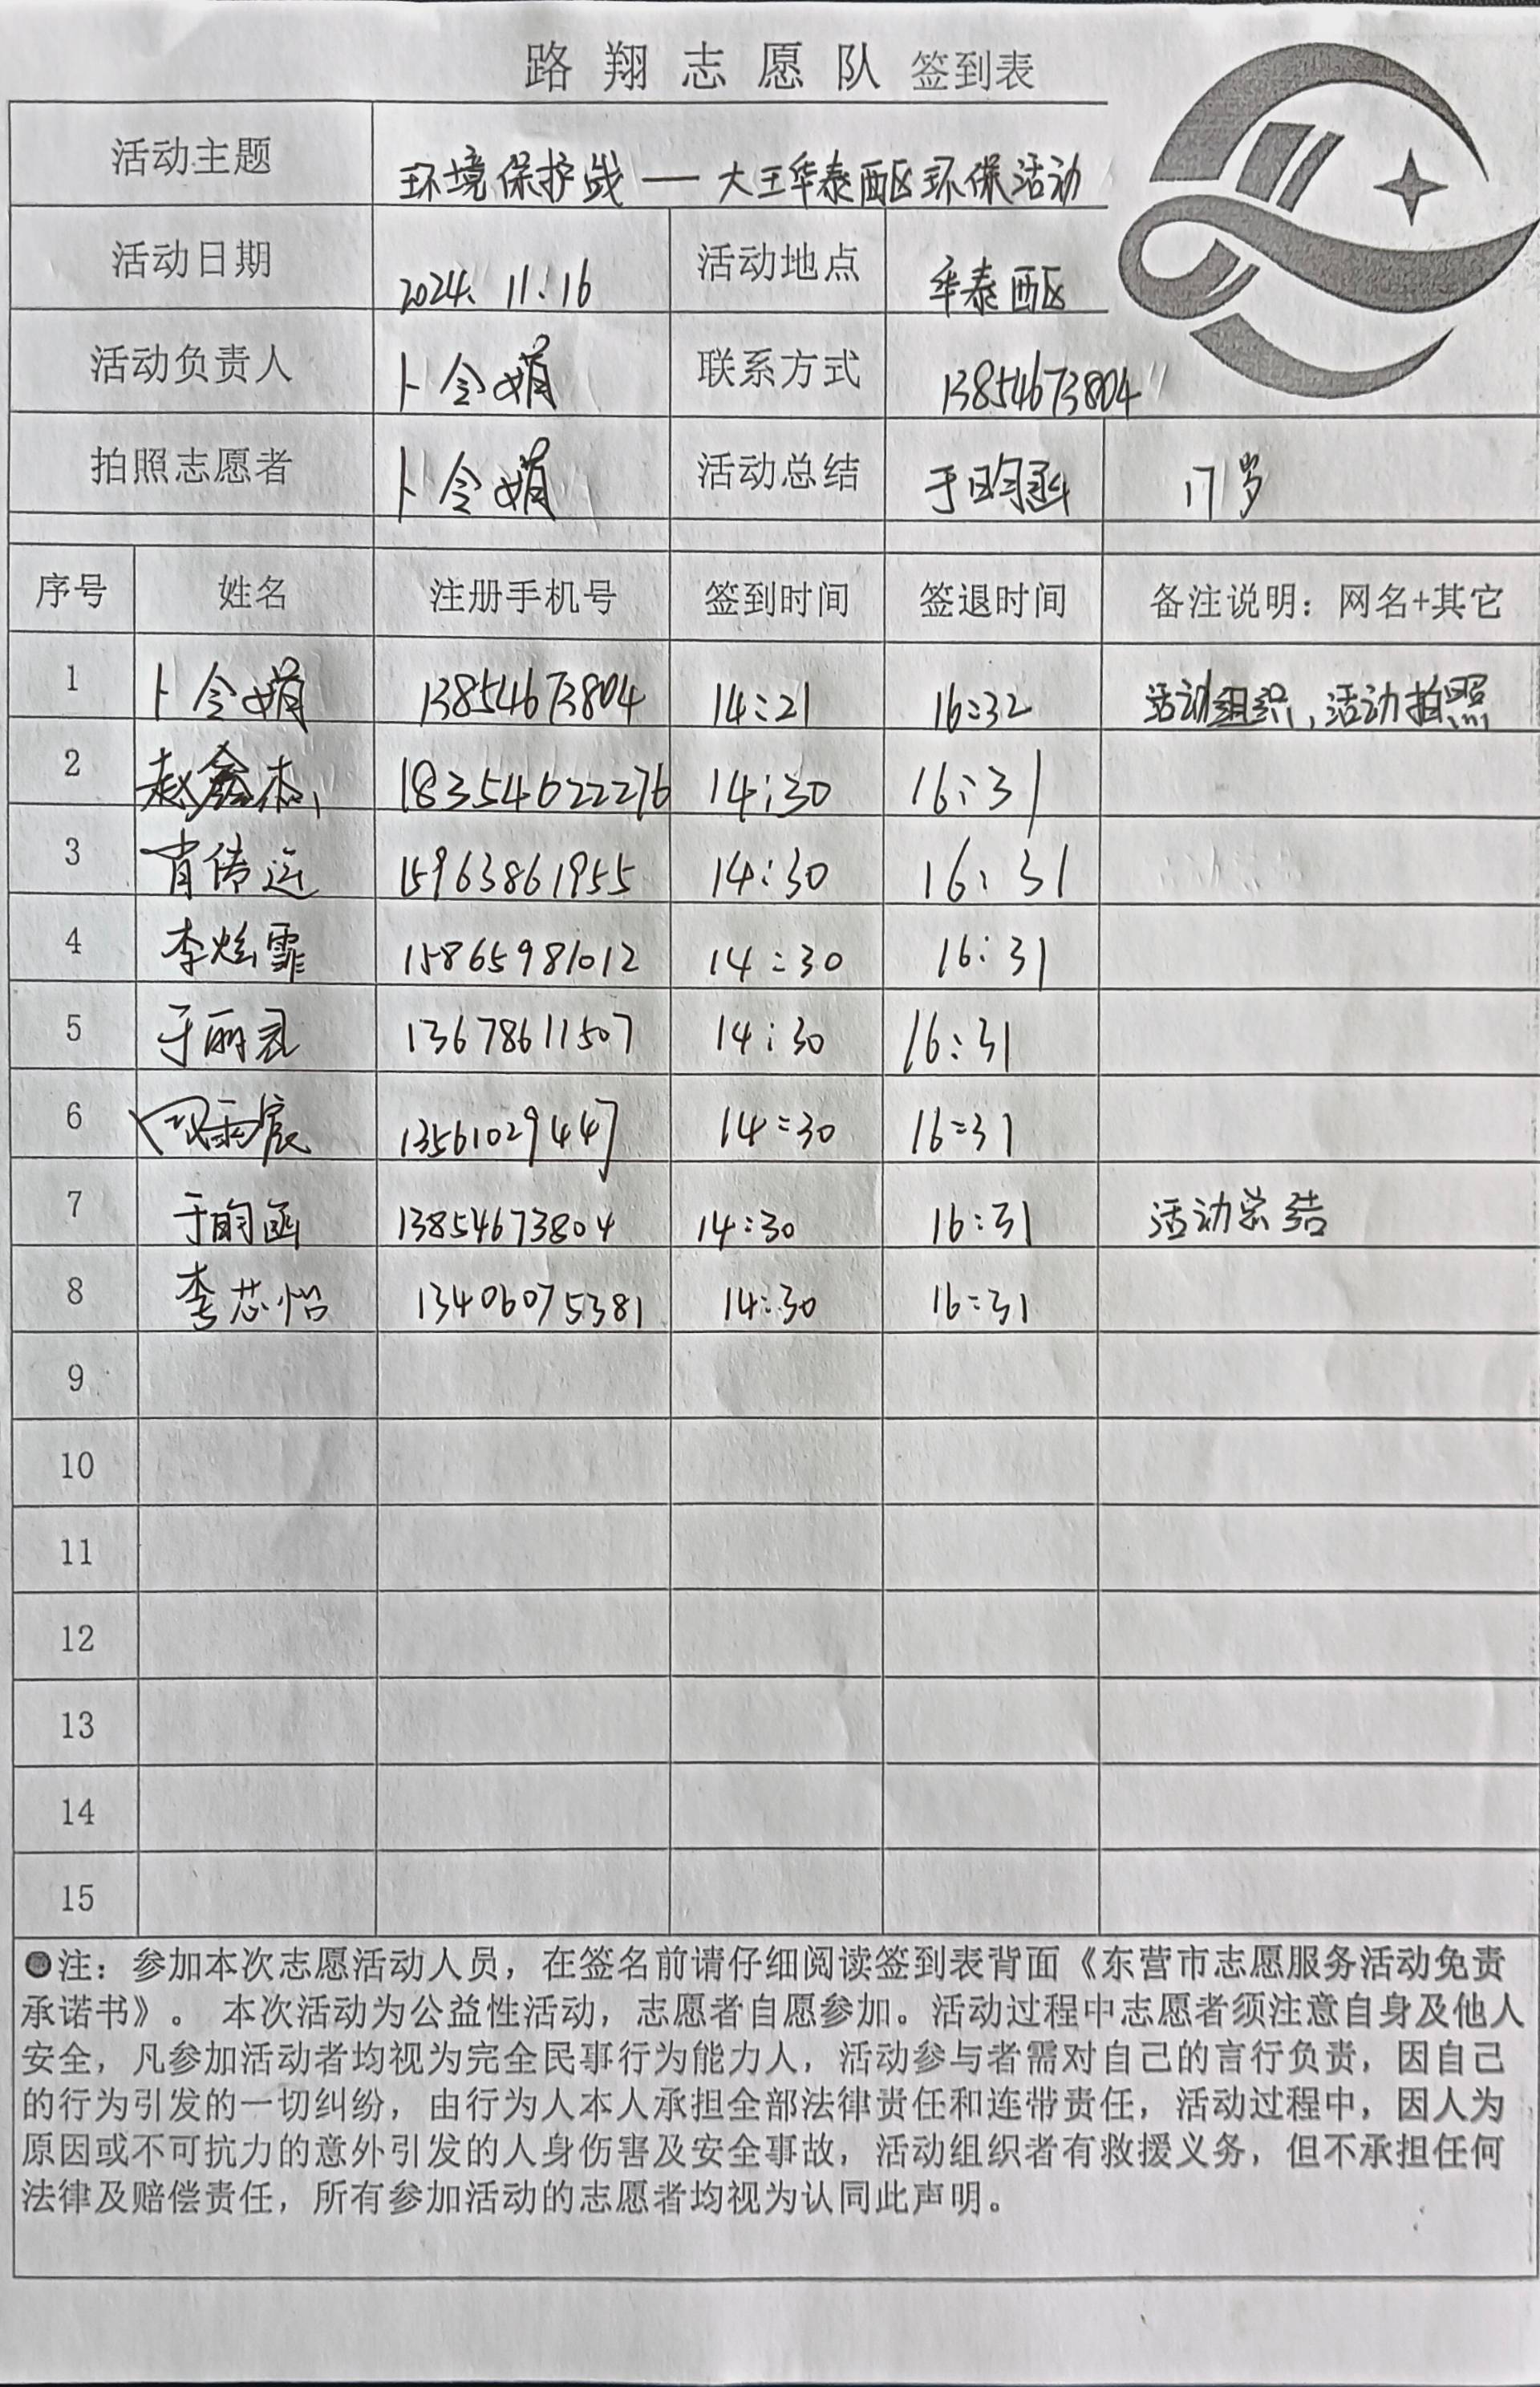 路翔志愿队 签到表
活动主题 环境保护战——大王华泰西区环保活动
活动日期 2024.11.16 活动地点 华泰西区
活动负责人 卜令娟 联系方式 13854673804
拍照志愿者 卜令娟 活动总结 于昀函 17岁
序号 姓名 注册手机号 签到时间 签退时间 备注说明：网名+其它
1 卜令娟 13854673804 14:21 16:32 活动组织，活动拍照
2 赵鑫杰 18354622276 14:30 16:31
3 肖传运 15963861955 14:30 16:31
4 李炫霏 15865981012 14:30 16:31
5 于丽君 13678611507 14:30 16:31
6 13561029447 14:30 16:31
7 于昀函 13854673804 14:30 16:31 活动总结
8 李芯怡 13406075381 14:30 16:31
9
10
11
12
13
14
15
●注：参加本次志愿活动人员，在签名前请仔细阅读签到表背面《东营市志愿服务活动免责
承诺书》。 本次活动为公益性活动，志愿者自愿参加。活动过程中志愿者须注意自身及他人
安全，凡参加活动者均视为完全民事行为能力人，活动参与者需对自己的言行负责，因自己
的行为引发的一切纠纷，由行为人本人承担全部法律责任和连带责任，活动过程中，因人为
原因或不可抗力的意外引发的人身伤害及安全事故，活动组织者有救援义务，但不承担任何
法律及赔偿责任，所有参加活动的志愿者均视为认同此声明。